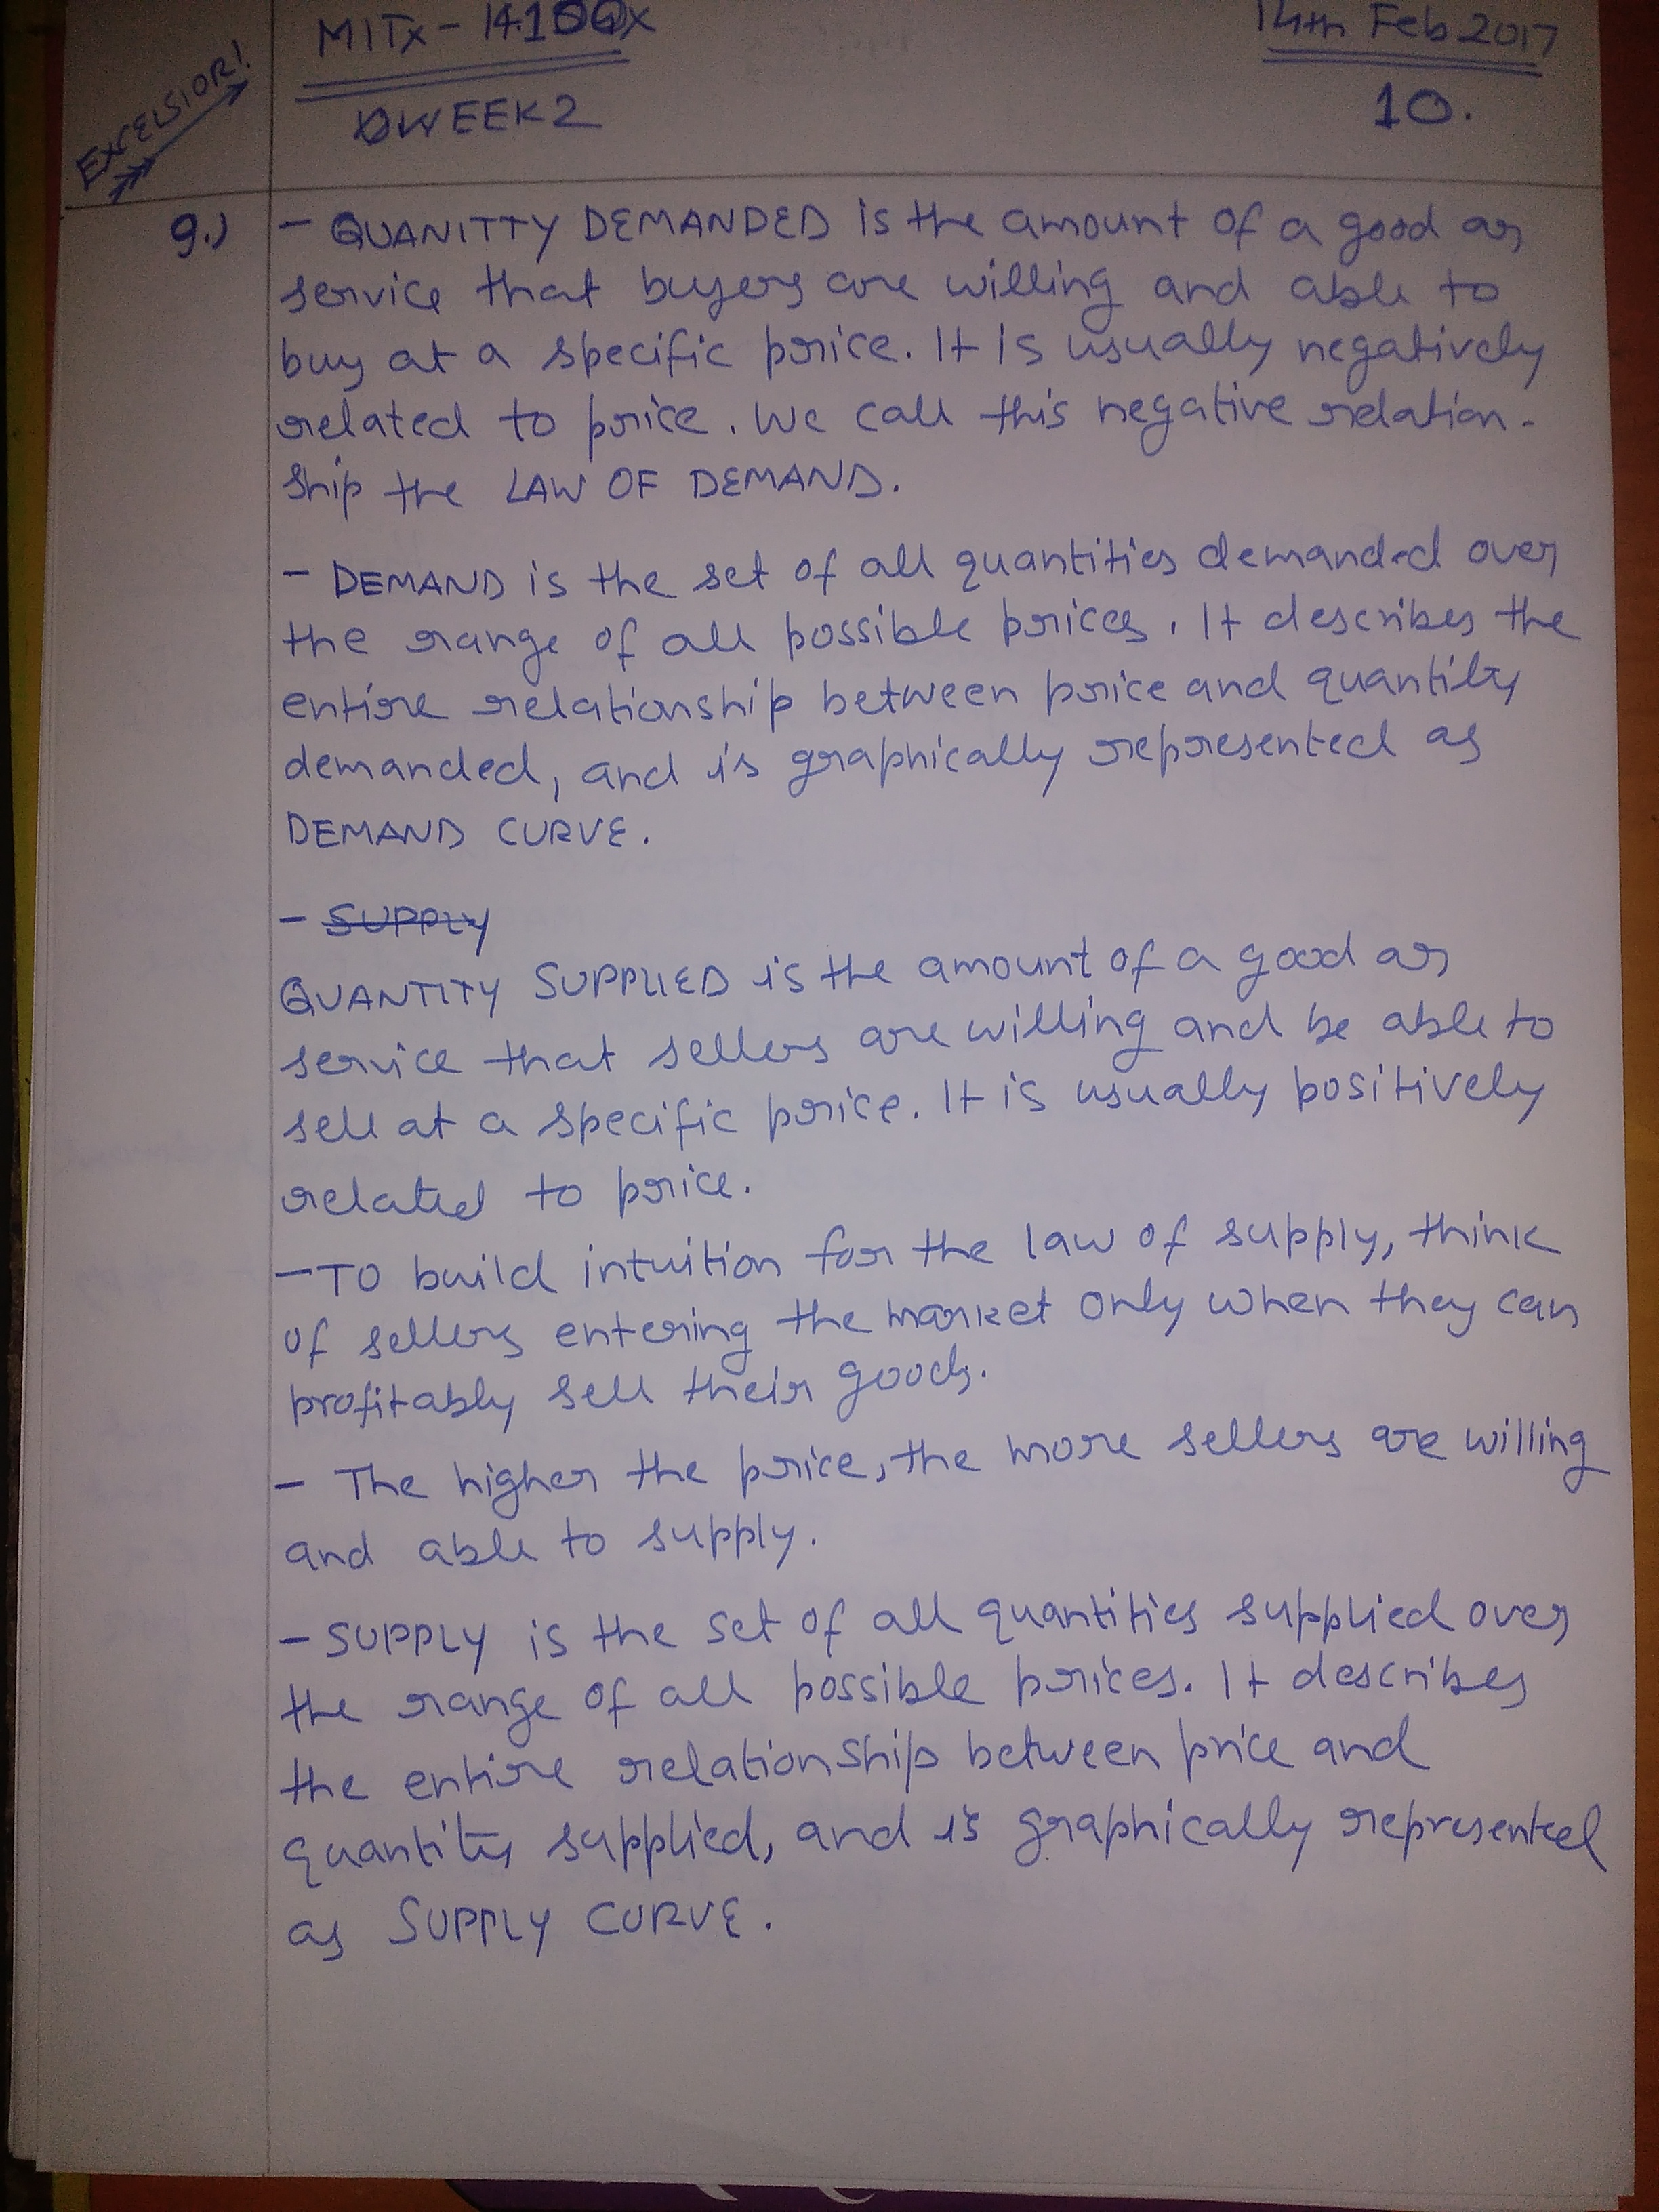 MITx - 14.100x
14th Feb 2017
EXCELSIOR!
WEEK 2
10.
9.) - QUANITTY DEMANDED is the amount of a good or
service that buyers are willing and able to
buy at a specific price. It is usually negatively
related to price. We call this negative relation-
ship the LAW OF DEMAND.
- DEMAND is the set of all quantities demanded over
the range of all possible prices. It describes the
entire relationship between price and quantity
demanded, and is graphically represented as
DEMAND CURVE.
- SUPPLY
QUANTITY SUPPLIED is the amount of a good or
service that sellers are willing and be able to
sell at a specific price. It is usually positively
related to price.
- TO build intuition for the law of supply, think
of sellers entering the market only when they can
profitably sell their goods.
- The higher the price, the more sellers are willing
and able to supply.
- SUPPLY is the set of all quantities supplied over
the range of all possible prices. It describes
the entire relationship between price and
quantity supplied, and is graphically represented
as SUPPLY CURVE.